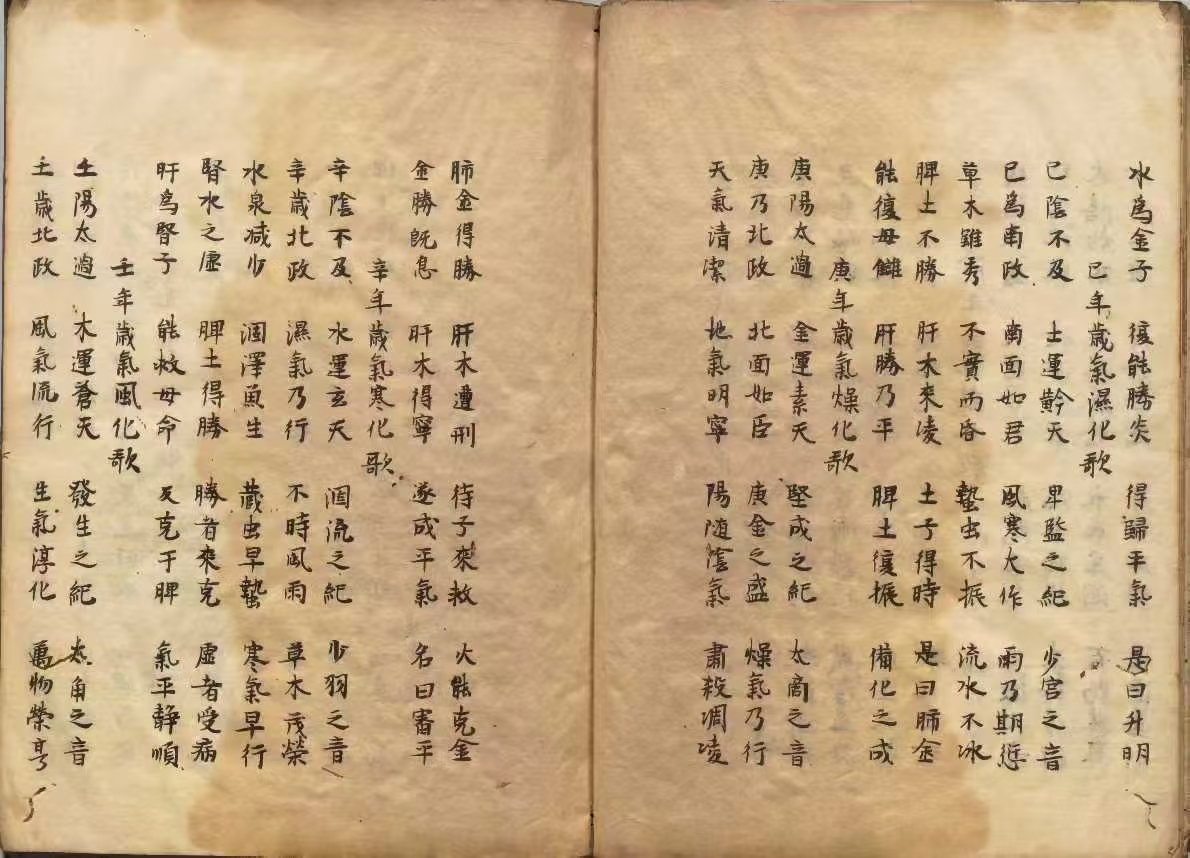 水為金子 復能勝炎 得歸平氣 是曰升明
己年歲氣濕化歌
己陰不及 土運黅天 卑監之紀 少宮之音
己為南政 南面如君 風寒大作 雨乃期愆
草木雖秀 不實而昏 蟄虫不振 流水不冰
脾土不勝 肝木來凌 土子得時 是曰肺金
能復母讎 肝勝乃平 脾土復振 備化之成
庚年歲氣燥化歌
庚陽太過 金運素天 堅成之紀 太商之音
庚乃北政 北面如臣 庚金之盛 燥氣乃行
天氣清潔 地氣明寧 陽隨陰氣 肅殺凋凌
肺金得勝 肝木遭刑 待子來救 火能克金
金勝既息 肝木得寧 遂成平氣 名曰審平
辛年歲氣寒化歌
辛陰不及 水運玄天 涸流之紀 少羽之音
辛歲北政 濕氣乃行 不時風雨 草木茂榮
水泉減少 涸澤魚生 藏虫早蟄 寒氣早行
腎水之虛 脾土得勝 勝者來克 虛者受病
肝為腎子 能救母命 反克于脾 氣平靜順
壬年歲氣風化歌
壬陽太過 木運蒼天 發生之紀 太角之音
壬歲北政 風氣流行 生氣淳化 萬物榮亨